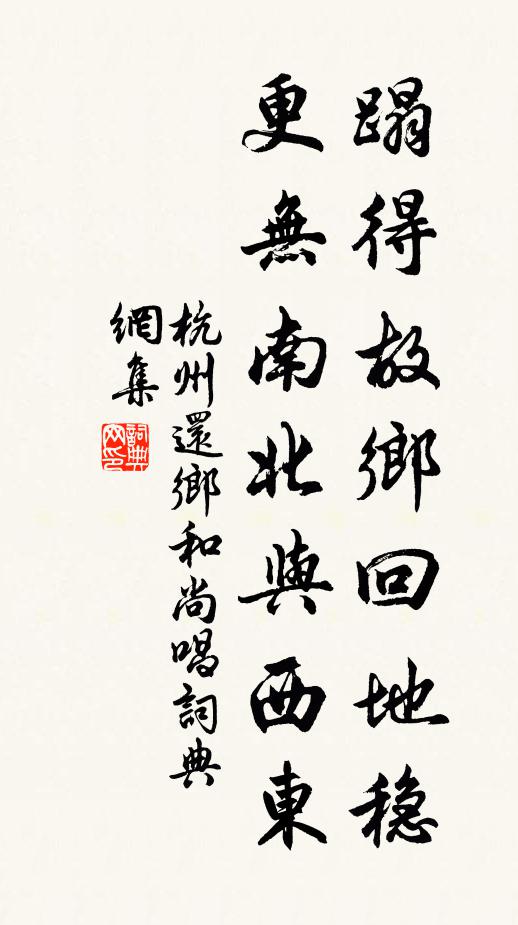 蹋得故鄉回地穩
更無南北與西東
杭州還鄉和尚唱詞典
網集
詞典
网印